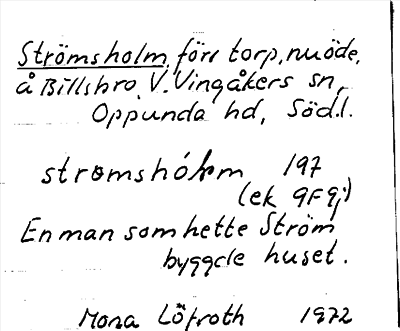 Strömsholm, förr torp, nu öde,
å Billsbro, V. Vingåkers sn,
Oppunda hd, Södl.
strømshólm 197
(ek 9F9j)
En man som hette Ström
byggde huset.
Mona Löfroth 1972